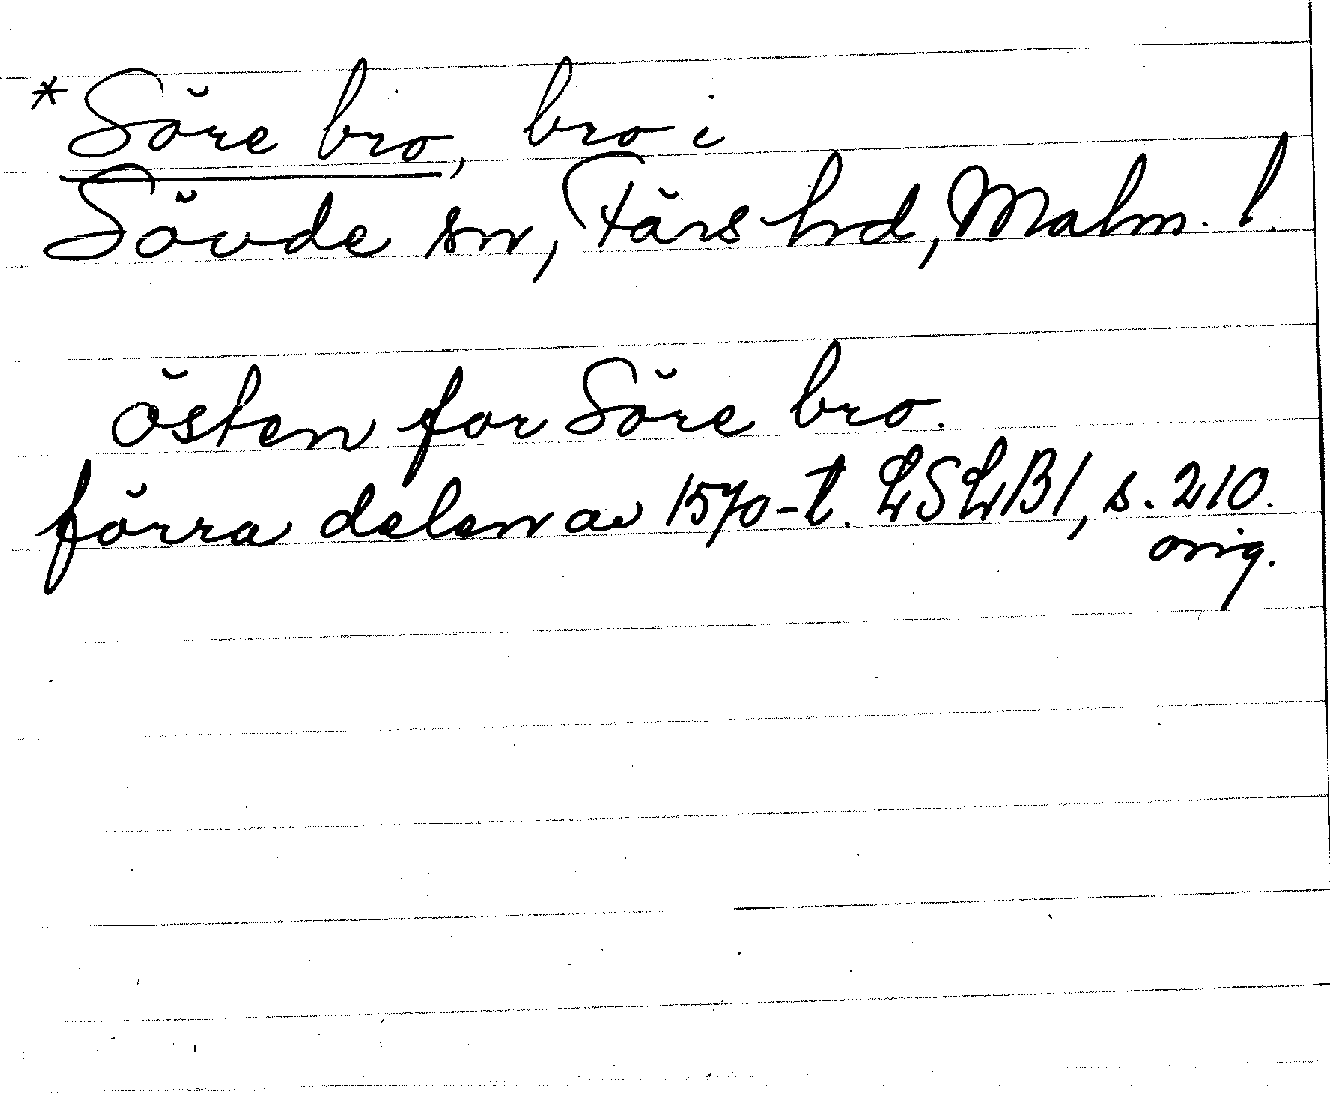 * Söre bro, bro i
Sövde sn, Färs hrd, Malm. l.
östen for Söre bro.
förra delen av 1570-t. LSLB1, s. 210.
orig.